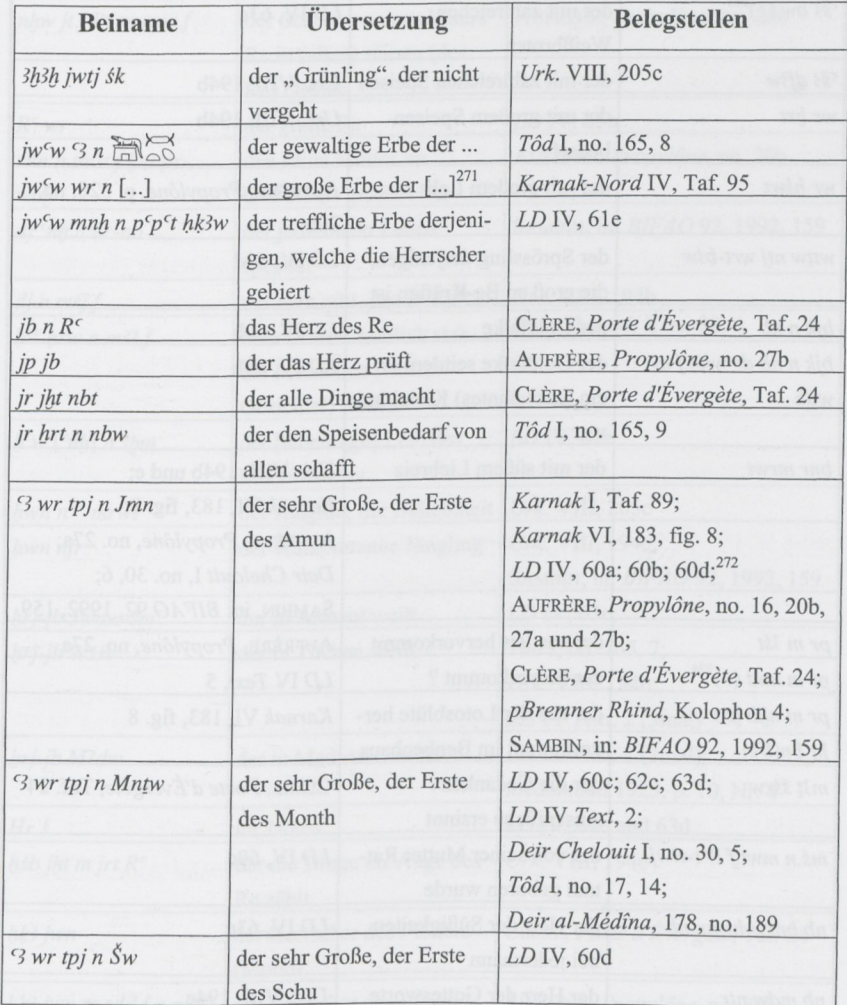 Beiname Übersetzung Belegstellen
ȝḫȝḫ jwtj śk der „Grünling“, der nicht Urk. VIII, 205c
vergeht
jwꜥw ꜥȝ n der gewaltige Erbe der ... Tôd I, no. 165, 8
jwꜥw wr n [...] der große Erbe der [...]²⁷¹ Karnak-Nord IV, Taf. 95
jwꜥw mnḫ n pꜥpꜥt ḥḳȝw der treffliche Erbe derjeni- LD IV, 61e
gen, welche die Herrscher
gebiert
jb n Rꜥ das Herz des Re CLÈRE, Porte d'Évergète, Taf. 24
jp jb der das Herz prüft AUFRÈRE, Propylône, no. 27b
jr jḫt nbt der alle Dinge macht CLÈRE, Porte d'Évergète, Taf. 24
jr ẖrt n nbw der den Speisenbedarf von Tôd I, no. 165, 9
allen schafft
ꜥȝ wr tpj n Jmn der sehr Große, der Erste Karnak I, Taf. 89;
des Amun Karnak VI, 183, fig. 8;
LD IV, 60a; 60b; 60d;²⁷²
AUFRÈRE, Propylône, no. 16, 20b,
27a und 27b;
CLÈRE, Porte d'Évergète, Taf. 24;
pBremner Rhind, Kolophon 4;
SAMBIN, in: BIFAO 92, 1992, 159
ꜥȝ wr tpj n Mnṯw der sehr Große, der Erste LD IV, 60c; 62c; 63d;
des Month LD IV Text, 2;
Deir Chelouit I, no. 30, 5;
Tôd I, no. 17, 14;
Deir al-Médîna, 178, no. 189
ꜥȝ wr tpj n Šw der sehr Große, der Erste LD IV, 60d
des Schu